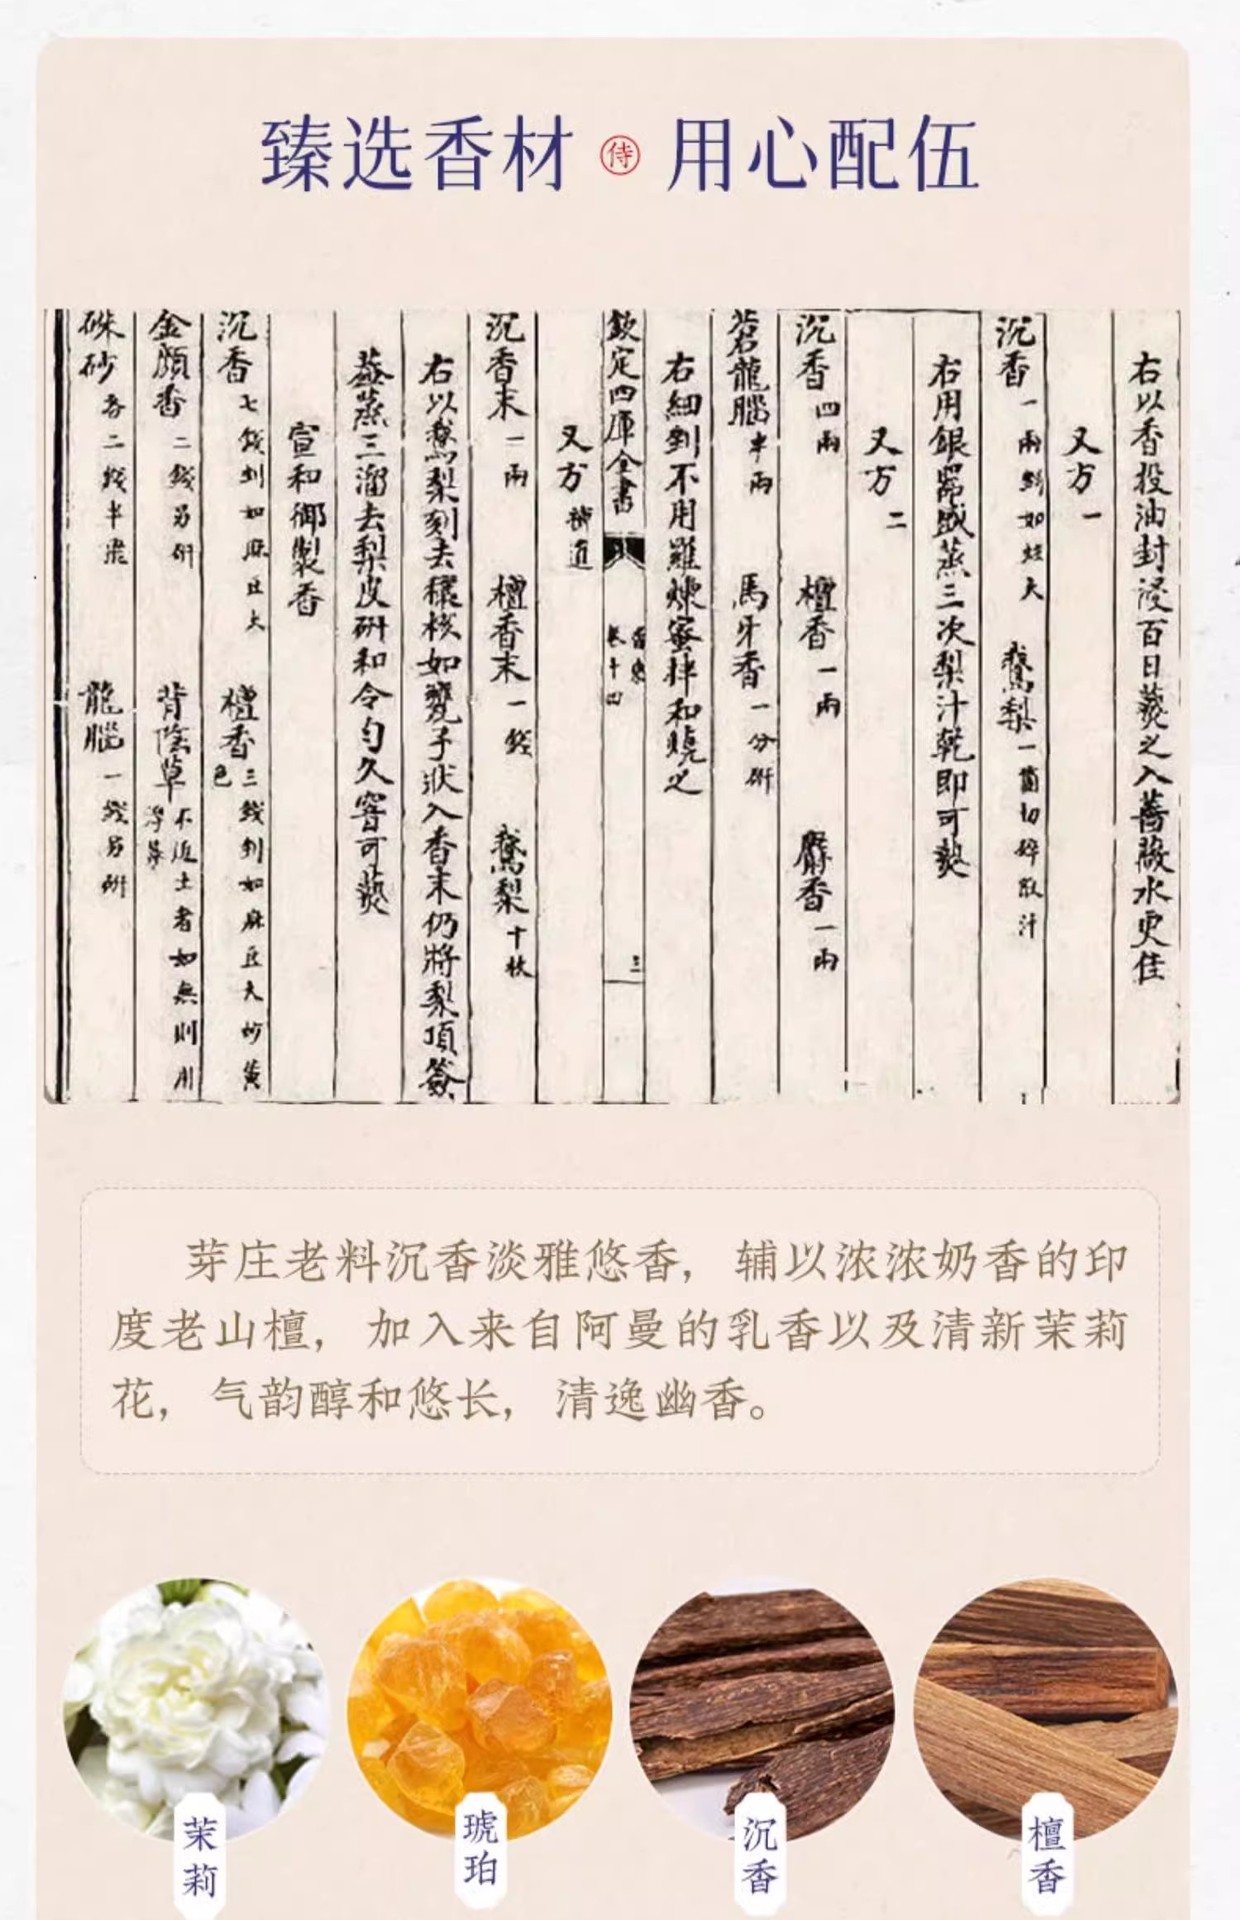 臻选香材 侍 用心配伍
右以香投油封浸百日爇之入薔薇水更佳
又方一
沉香一兩剉如炷大 鵞梨一箇切碎取汁
右用銀器盛蒸三次梨汁乾即可爇
又方二
沉香四兩 檀香一兩 麝香一兩
龍腦半兩 馬牙香一分研
右細剉不用羅煉蜜拌和燒之
欽定四庫全書 香乘 卷十四 三
又方 補遺
沉香末一兩 檀香末一錢 鵞梨十枚
右以鵞梨刻去穰核如甕子狀入香末仍將梨頂簽
蓋蒸三溜去梨皮研和令勻久窨可爇
宣和御製香
沉香七錢剉如麻豆大 檀香三錢剉如麻豆大炒黃色
金顏香二錢另研 背陰草不近土者如無則用浮萍
硃砂各二錢半飛 龍腦一錢另研
芽庄老料沉香淡雅悠香，辅以浓浓奶香的印
度老山檀，加入来自阿曼的乳香以及清新茉莉
花，气韵醇和悠长，清逸幽香。
茉莉
琥珀
沉香
檀香